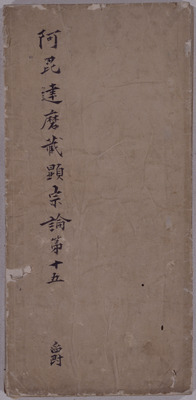 阿毘達磨藏顯宗論第十五
爵